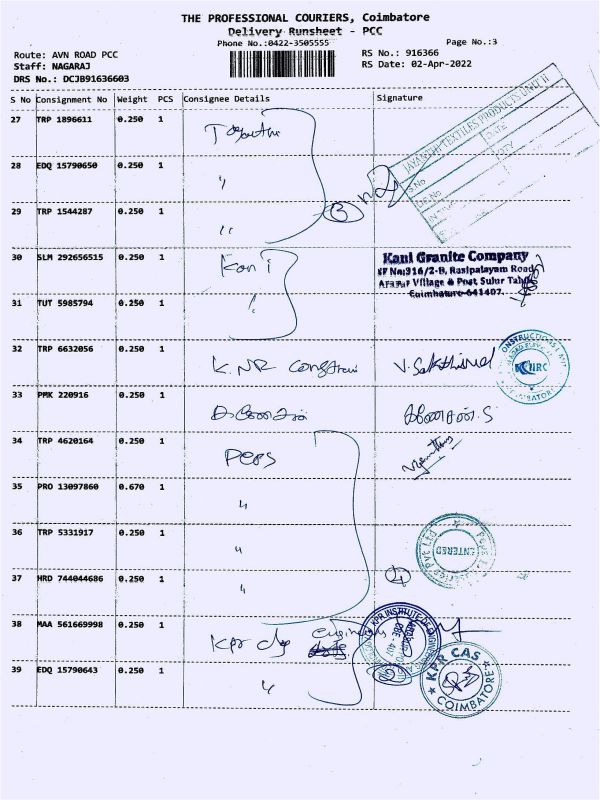 THE PROFESSIONAL COURIERS, Coimbatore
Delivery Runsheet - PCC
Phone No.:0422-3505555
Page No.:3
Route: AVN ROAD PCC
RS No.: 916366
Staff: NAGARAJ
RS Date: 02-Apr-2022
DRS No.: DCJB91636603
S No Consignment No Weight PCS Consignee Details Signature
27 TRP 1896611 0.250 1
JAYANTHI TEXTILES PRODUCTS UNIT II
S.No DATE
QTY
28 EDQ 15790650 0.250 1 "
29 TRP 1544287 0.250 1 "
3
30 SLM 292656515 0.250 1 Kani
Kani Granite Company
SF No:316/2-B, Rasipalayam Road
Arasur Village & Post, Sulur Taluk
Coimbatore-641407.
31 TUT 5985794 0.250 1 "
32 TRP 6632056 0.250 1 K.NR V. Sakthivel
KNRC
33 PMK 220916 0.250 1
34 TRP 4620164 0.250 1 Peps
35 PRO 13097860 0.670 1 "
36 TRP 5331917 0.250 1 "
ENTERED
37 HRD 744044686 0.250 1 " 4
38 MAA 561669998 0.250 1 Kpr clg engineering
KPR INSTITUTE OF ENGINEERING
39 EDQ 15790643 0.250 1 "
2
KPR CAS
COIMBATORE